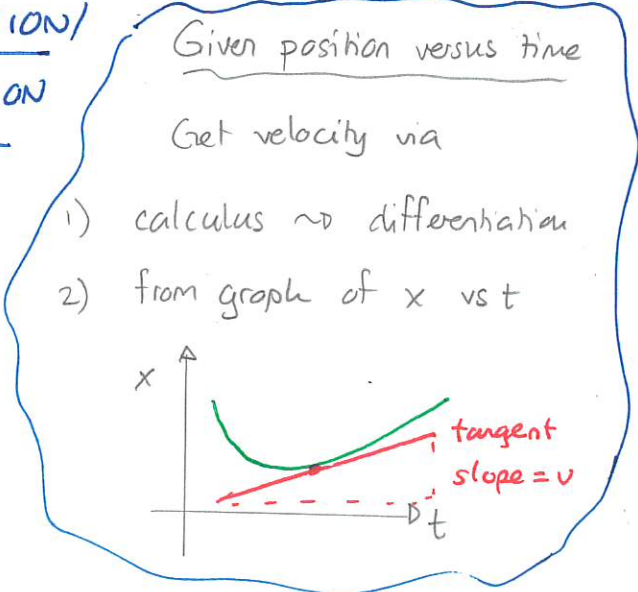 ION/
ON
Given position versus time
Get velocity via
1) calculus ~> differentiation
2) from graph of x vs t
x
tangent
slope = v
t